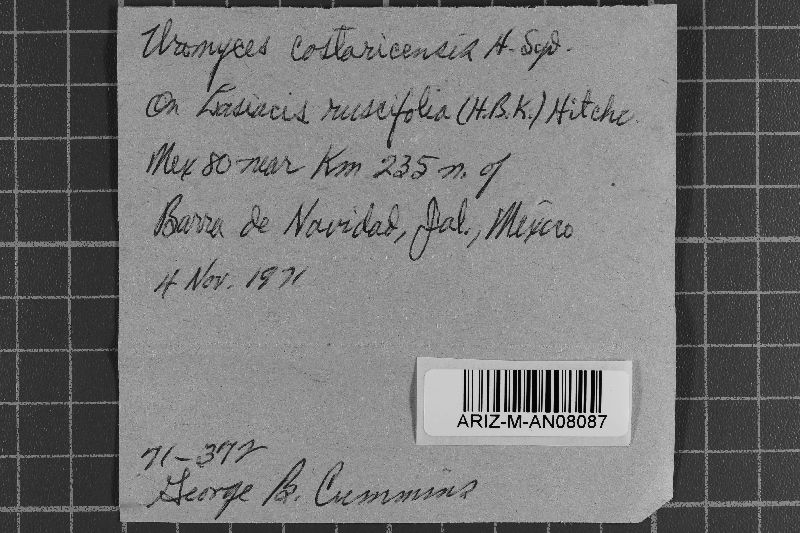 Uromyces costaricensis H. Syd.
On Lasiacis ruscifolia (H.B.K.) Hitchc.
Mex 80 near Km 235 n. of
Barra de Navidad, Jal., Mexico
4 Nov. 1971
ARIZ-M-AN08087
71-372
George B. Cummins